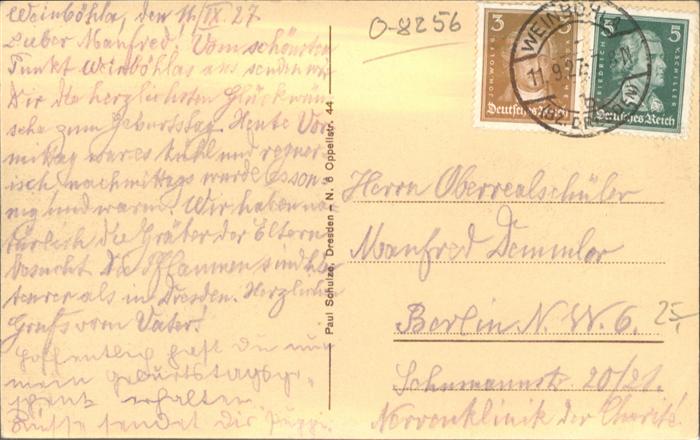 Weinböhla, den 11./IX. 27.
Lieber Manfred! Vom schönsten
Punkt Weinböhlas aus senden wir
Dir die herzlichsten Glückwün-
sche zum Geburtstag. Heute Vor-
mittag war es kühl und regner-
isch, nachmittags wurde es son-
nig und warm. Wir haben na-
türlich die Gräber der Eltern
besucht. Die Pflaumen sind hier
teurer als in Dresden. Herzlichen
Gruß vom Vater!
Hoffentlich hast Du nun
mein Geburtstagsge-
schenk erhalten
Grüsse sendet dir
O-8256
3 3
JOH. WOLFG.
Deutsches Reich
5 5
FRIEDRICH V. SCHILLER
Deutsches Reich
WEINBÖHLA
11.9.27
Paul Schulze, Dresden-N. 6 Oppellstr. 44
Herrn Oberrealschüler
Manfred Demmler
Berlin N. W. 6.
25,-
Schumannstr. 20/21.
Nervenklinik der Charité!